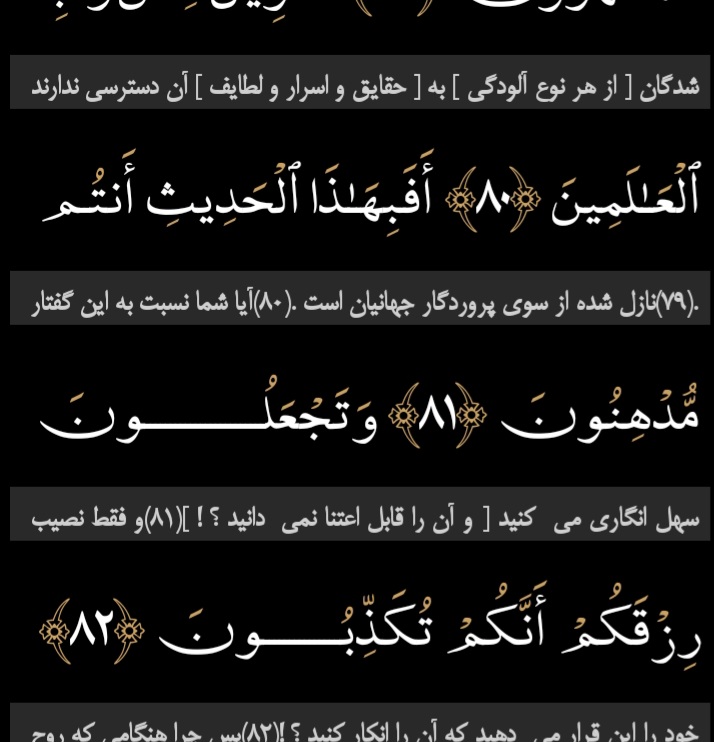 شدگان [ از هر نوع آلودگی ] به [ حقایق و اسرار و لطایف ] آن دسترسی ندارند
ٱلْعَـٰلَمِينَ ﴿٨٠﴾ أَفَبِهَـٰذَا ٱلْحَدِيثِ أَنتُم
.(۷۹)نازل شده از سوی پروردگار جهانیان است .(۸۰)آیا شما نسبت به این گفتار
مُّدْهِنُونَ ﴿٨١﴾ وَتَجْعَلُـــــونَ
سهل انگاری می کنید [ و آن را قابل اعتنا نمی دانید ؟ ! ](۸۱)و فقط نصیب
رِزْقَكُمْ أَنَّكُمْ تُكَذِّبُـــــونَ ﴿٨٢﴾
خود را این قرار می دهید که آن را انکار کنید ؟ !(۸۲)پس چرا هنگامی که روح